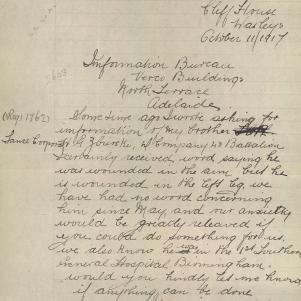 Cliff House
Wasleys
October 11/1917
Information Bureau
Verco Buildings
North Terrace
Adelaide
(Reg 1862)
Some time ago I wrote asking for
information of my brother
Lance Corporal
G Zwerk, Company 10 Battalion
certainly received word, saying he
was wounded in the arm, but he
is wounded in the left leg, we
have had no word concerning
him since May, and our anxiety
would be greatly releaved if
you could do something for us,
we also know he was in the 1st Southern
General Hospital Birmingham,
would you kindly let me know
if anything can be done